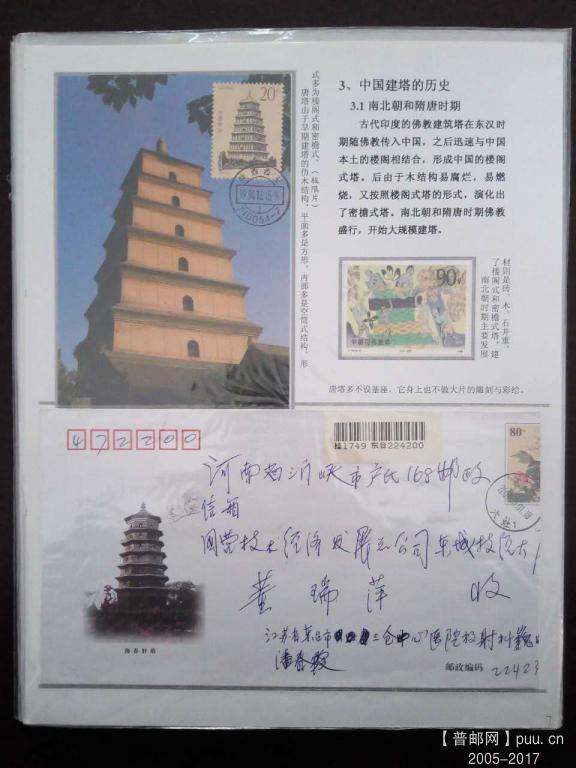 3、中国建塔的历史
3.1 南北朝和隋唐时期
古代印度的佛教建筑塔在东汉时
期随佛教传入中国，之后迅速与中国
本土的楼阁相结合，形成中国的楼阁
式塔。后由于木结构易腐烂，易燃
烧，又按照楼阁式塔的形式，演化出
了密檐式塔。南北朝和隋唐时期佛教
盛行，开始大规模建塔。
唐塔由于早期建塔的仿木结构，平面多是方形，内部多是空筒式结构，形
式多为楼阁式和密檐式。（极限片）
20分
710054-7
90分
南北朝时期主要发展
了楼阁式和密檐式塔，建
材则是砖、木、石并重。
唐塔多不设基座，它身上也不做大片的雕刻与彩绘。
472200
桂1749 东台224200
80分
河南省三门峡市卢氏168邮政
信箱
黄瑞萍 收
邮政编码
7
【普邮网】puu.cn
2005-2017